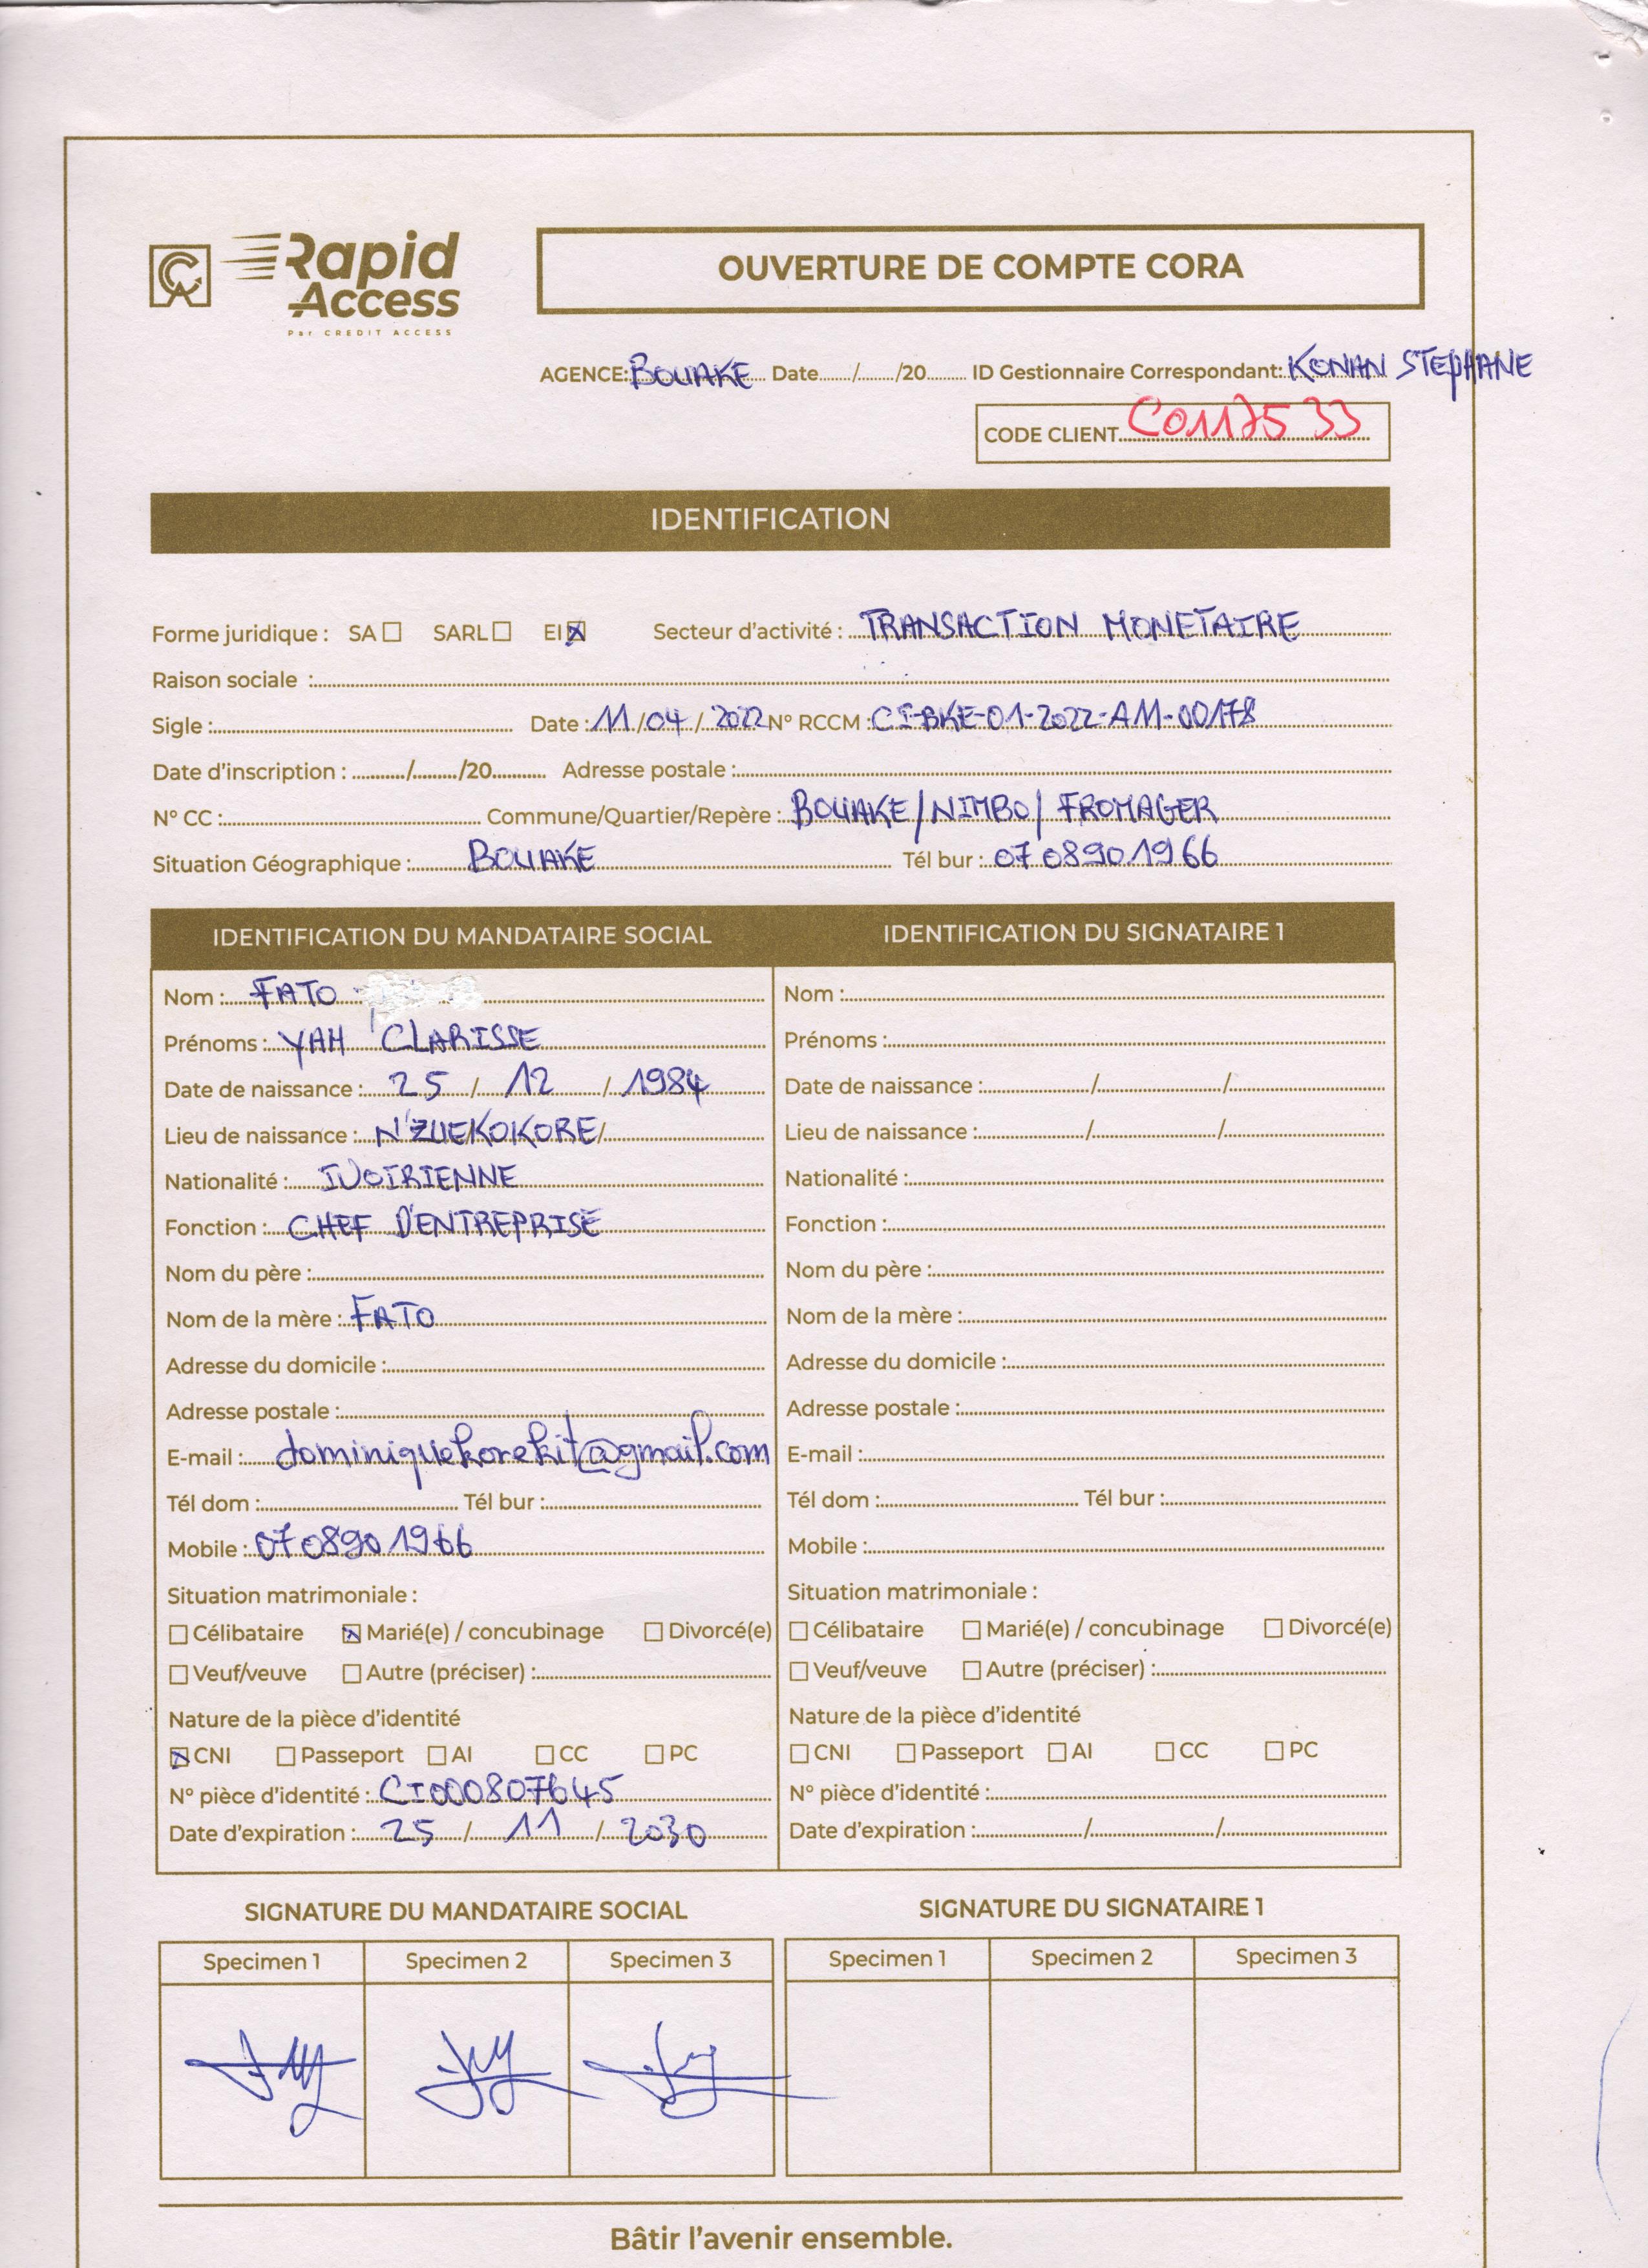 Rapid
Access
Par CREDIT ACCESS
OUVERTURE DE COMPTE CORA
AGENCE: BOUAKE Date....../....../20...... ID Gestionnaire Correspondant: KONAN STEPHANE
CODE CLIENT C0117533
IDENTIFICATION
Forme juridique : SA ☐ SARL ☐ EI ☒ Secteur d'activité : TRANSACTION MONETAIRE
Raison sociale :
Sigle : Date : 11/04/2022 N° RCCM : CI-BKE-01-2022-AM-00178
Date d'inscription : ....../....../20...... Adresse postale :
N° CC : Commune/Quartier/Repère : BOUAKE/NIMBO/FROMAGER
Situation Géographique : BOUAKE Tél bur : 07 08901966
IDENTIFICATION DU MANDATAIRE SOCIAL
Nom : FATO
Prénoms : YAH CLARISSE
Date de naissance : 25 / 12 / 1984
Lieu de naissance : N'ZUEKOKORE
Nationalité : IVOIRIENNE
Fonction : CHEF D'ENTREPRISE
Nom du père :
Nom de la mère : FATO
Adresse du domicile :
Adresse postale :
E-mail : dominiquekorekit@gmail.com
Tél dom : Tél bur :
Mobile : 07 08901966
Situation matrimoniale :
☐ Célibataire ☒ Marié(e) / concubinage ☐ Divorcé(e)
☐ Veuf/veuve ☐ Autre (préciser) :
Nature de la pièce d'identité
☒ CNI ☐ Passeport ☐ AI ☐ CC ☐ PC
N° pièce d'identité : CI000807645
Date d'expiration : 25 / 11 / 2030
IDENTIFICATION DU SIGNATAIRE 1
Nom :
Prénoms :
Date de naissance : / /
Lieu de naissance : / /
Nationalité :
Fonction :
Nom du père :
Nom de la mère :
Adresse du domicile :
Adresse postale :
E-mail :
Tél dom : Tél bur :
Mobile :
Situation matrimoniale :
☐ Célibataire ☐ Marié(e) / concubinage ☐ Divorcé(e)
☐ Veuf/veuve ☐ Autre (préciser) :
Nature de la pièce d'identité
☐ CNI ☐ Passeport ☐ AI ☐ CC ☐ PC
N° pièce d'identité :
Date d'expiration : / /
SIGNATURE DU MANDATAIRE SOCIAL
Specimen 1 Specimen 2 Specimen 3
SIGNATURE DU SIGNATAIRE 1
Specimen 1 Specimen 2 Specimen 3
Bâtir l'avenir ensemble.